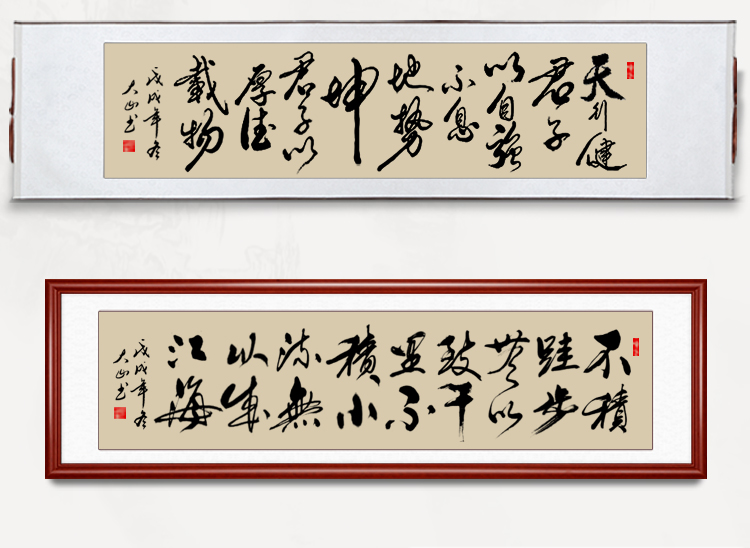 天行健
君子
以自強
不息
地勢
坤
君子以
厚德
載物
戊戌年冬
大山书
不積
跬步
無以
致千
里不
積小
流無
以成
江海
戊戌年冬
大山书